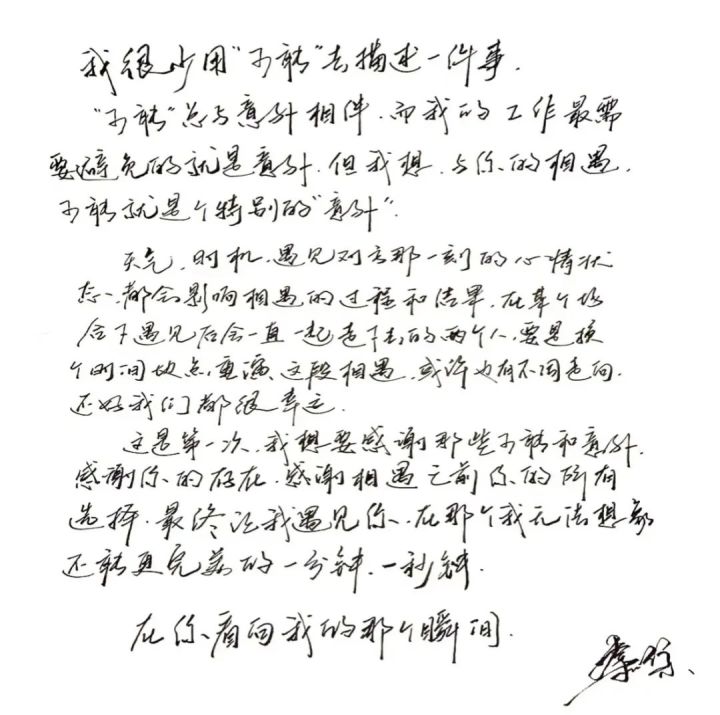 我很少用“可能”去描述一件事.
“可能”总与意外相伴.而我的工作最需
要避免的就是意外.但我想.与你的相遇.
可能就是个特别的“意外”.
天气.时机.遇见对方那一刻的心情状
态、都会影响相遇的过程和结果.在某个场
合下遇见后会一直一起走下去的两个人.要是换
个时间地点.重演这段相遇.或许也有不同走向.
还好我们都很幸运.
这是第一次.我想要感谢那些可能和意外.
感谢你的存在.感谢相遇之前你的所有
选择.最终让我遇见你.在那个我无法想象
还能更完美的一分钟.一秒钟.
在你看向我的那个瞬间.